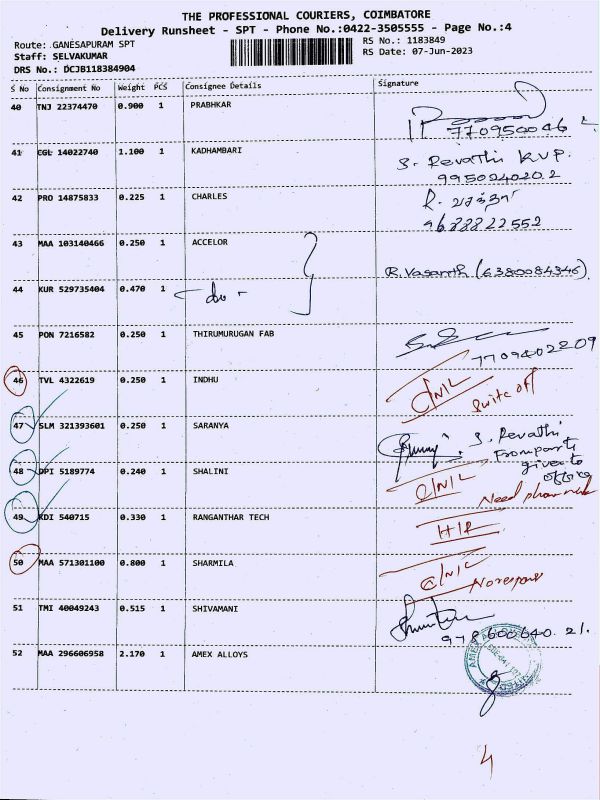 THE PROFESSIONAL COURIERS, COIMBATORE
Delivery Runsheet - SPT - Phone No.:0422-3505555 - Page No.:4
Route: GANESAPURAM SPT
RS No.: 1183849
Staff: SELVAKUMAR
RS Date: 07-Jun-2023
DRS No.: DCJB118384904
S No Consignment No Weight PCS Consignee Details Signature
40 TNJ 22374470 0.900 1 PRABHKAR
770950046
41 CGL 14022740 1.100 1 KADHAMBARI S. Revathi KVP.
9950240202
42 PRO 14875833 0.225 1 CHARLES R.
9688822552
43 MAA 103140466 0.250 1 ACCELOR
R. Vasanth (6380084346).
44 KUR 529735404 0.470 1 - do -
45 PON 7216582 0.250 1 THIRUMURUGAN FAB
7709402209
46 TVL 4322619 0.250 1 INDHU
C/N/L
Switc off
47 SLM 321393601 0.250 1 SARANYA S. Revathi
From party
given to
office
48 DPI 5189774 0.240 1 SHALINI C/N/L
Need phone no
49 KDI 540715 0.330 1 RANGANTHAR TECH
50 MAA 571301100 0.800 1 SHARMILA C/N/L
No respons
51 TMI 40049243 0.515 1 SHIVAMANI
978600640.21.
52 MAA 296606958 2.170 1 AMEX ALLOYS
4